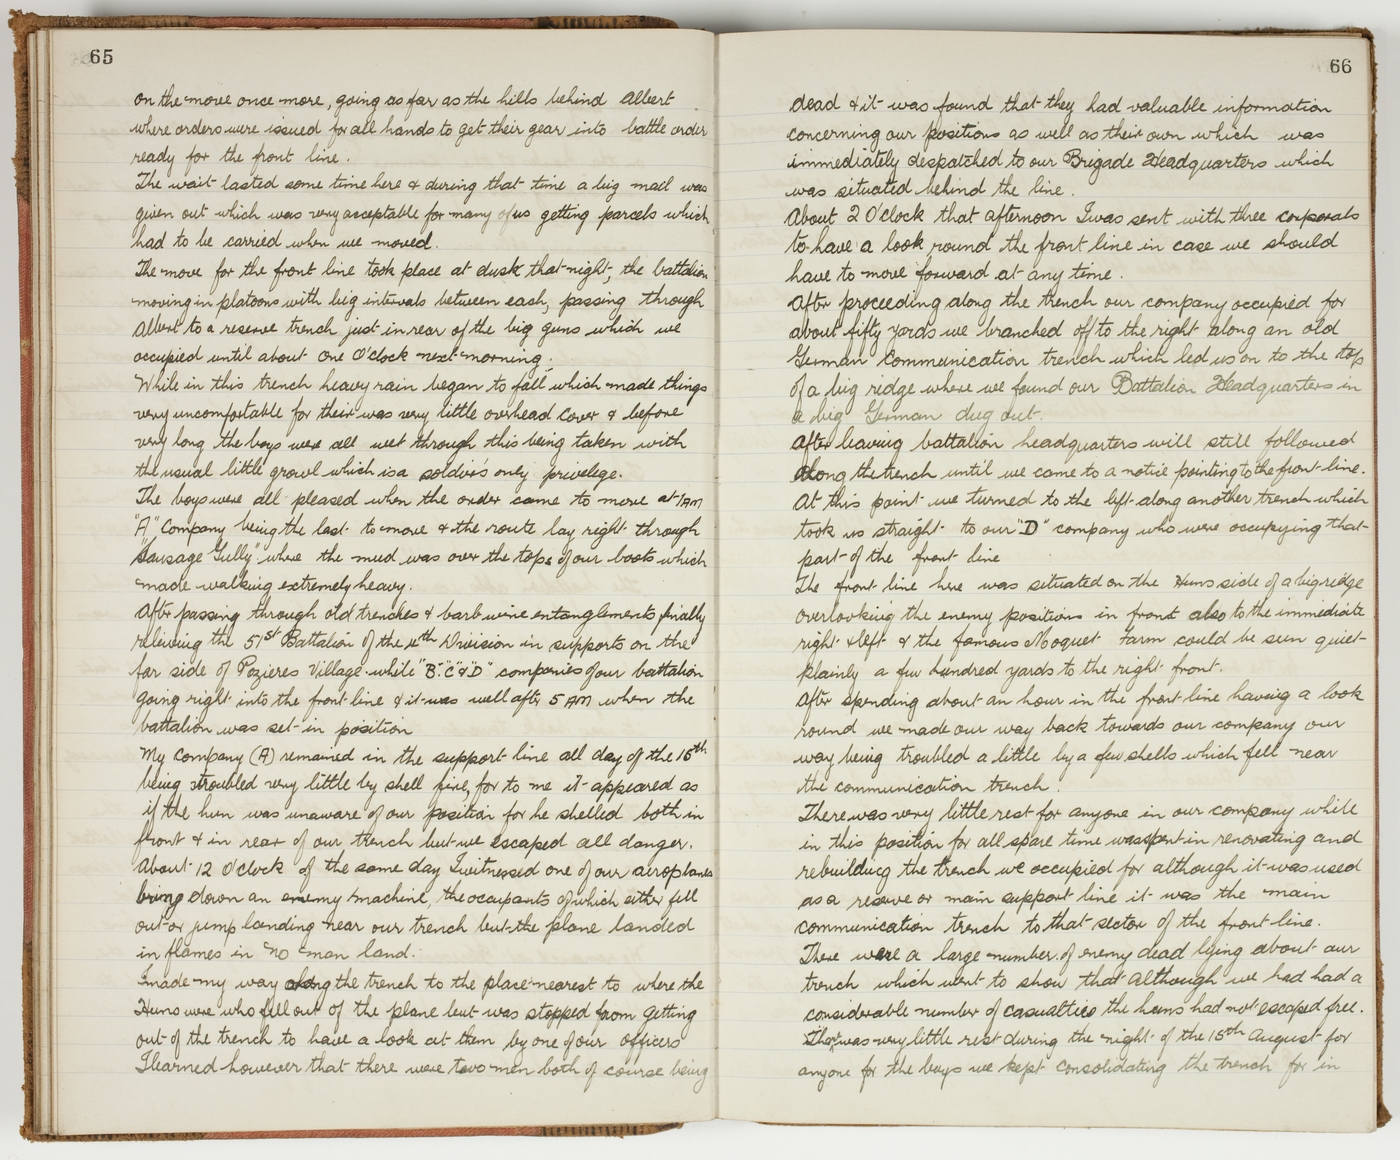 65
on the move once more, going as far as the hills behind Albert
where orders were issued for all hands to get their gear into battle order
ready for the front line.
The wait lasted some time here & during that time a big mail was
given out which was very acceptable for many of us getting parcels which
had to be carried when we moved.
The move for the front line took place at dusk that night, the battalion
moving in platoons with big intervals between each, passing through
Albert to a reserve trench just in rear of the big guns which we
occupied until about one O'clock next morning.
While in this trench heavy rain began to fall which made things
very uncomfortable for their was very little overhead cover & before
very long the boys were all wet through this being taken with
the usual little growl which is a soldier's only privelege.
The boys were all pleased when the order came to move at 1 AM
"A" Company being the last to move & the route lay right through
"Sausage Gully" where the mud was over the tops of our boots which
made walking extremely heavy.
After passing through old trenches & barb wire entanglements finally
relieving the 51st Battalion of the 4th Division in supports on the
far side of Pozieres Village while "B" "C" & "D" companies of our battalion
going right into the front line & it was well after 5 AM when the
battalion was set in position
My Company (A) remained in the support line all day of the 15th
being troubled very little by shell fire, for to me it appeared as
if the hun was unaware of our position for he shelled both in
front & in rear of our trench but we escaped all danger.
About 12 O'clock of the same day I witnessed one of our airoplanes
bring down an enemy machine, the occupants of which either fell
out or jump landing near our trench but the plane landed
in flames in "no man land.
I made my way along the trench to the place nearest to where the
Huns were who fell out of the plane but was stopped from getting
out of the trench to have a look at them by one of our officers
I learned however that there were two men both of course being
66
dead & it was found that they had valuable information
concerning our positions as well as their own which was
immediately despatched to our Brigade Headquarters which
was situated behind the line.
About 2 O'clock that afternoon I was sent with three corporals
to have a look round the front line in case we should
have to move forward at any time.
After proceeding along the trench our company occupied for
about fifty yards we branched off to the right along an old
German Communication trench which led us on to the top
of a big ridge where we found our Battalion Headquarters in
a big German dug out.
After leaving battalion headquarters will still followed
along the trench until we came to a notice pointing to the front line.
At this point we turned to the left along another trench which
took us straight to our "D" company who were occupying that
part of the front line
The front line here was situated on the Huns side of a big ridge
overlooking the enemy positions in front also to the immediate
right & left & the famous Moquet Farm could be seen quiet
plainly a few hundred yards to the right front.
After spending about an hour in the front line having a look
round we made our way back towards our company our
way being troubled a little by a few shells which fell near
the communication trench.
There was very little rest for anyone in our company while
in this position for all spare time was spent in renovating and
rebuilding the trench we occupied for although it was used
as a reserve or main support line it was the main
communication trench to that sector of the front line.
There were a large number of enemy dead lying about our
trench which went to show that although we had had a
considerable number of casualties the huns had not escaped free.
There was very little rest during the night of the 15th August for
anyone for the boys we kept consolidating the trench for in